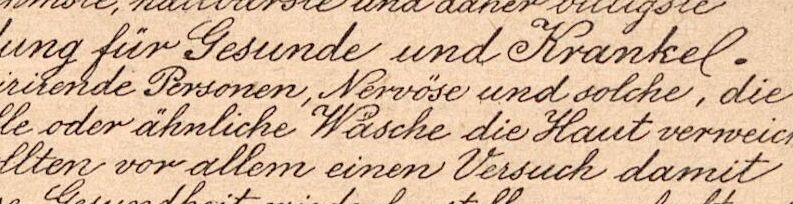 haltbarste und daher billigste
ung für Gesunde und Krankel.
irirende Personen, Nervöse und solche, die
lle oder ähnliche Wäsche die Haut verweich
llten vor allem einen Versuch damit
Gesundheit